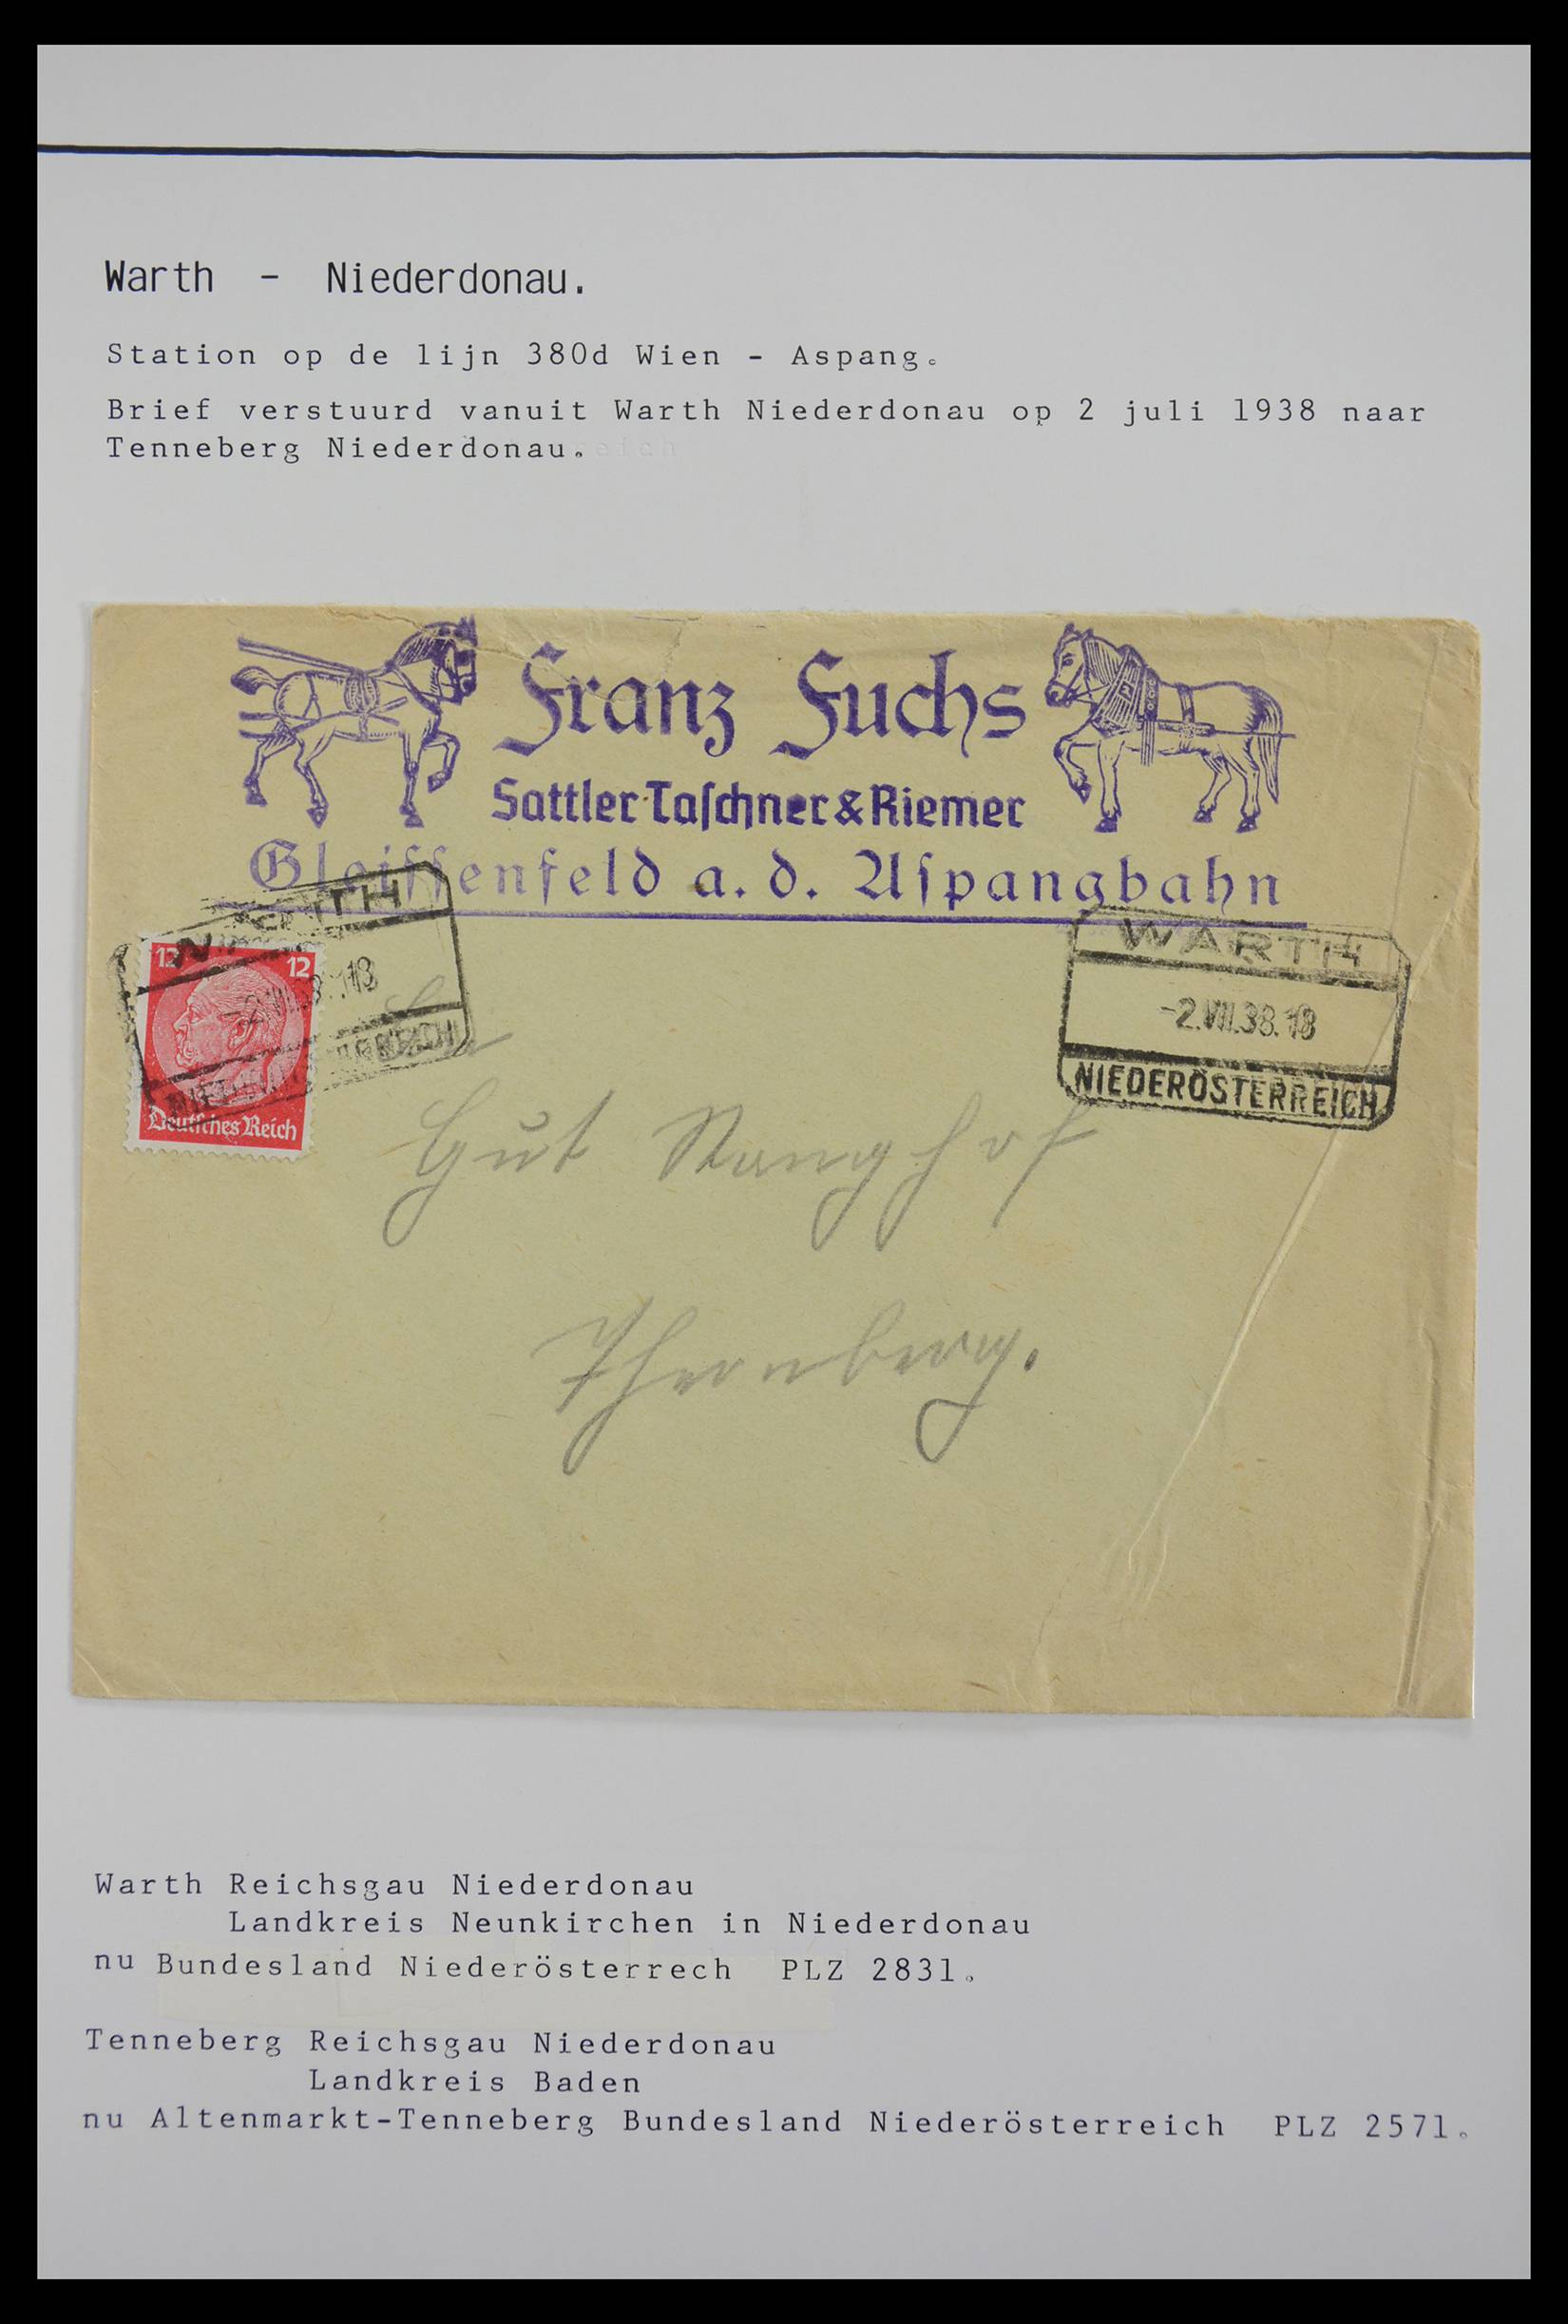 Warth - Niederdonau.
Station op de lijn 380d Wien - Aspang.
Brief verstuurd vanuit Warth Niederdonau op 2 juli 1938 naar
Tenneberg Niederdonau.
Franz Fuchs
Sattler-Taſchner & Riemer
Gleiſſenfeld a. d. Aſpangbahn
12 12
Deutſches Reich
WARTH
-2.VII.38.18
NIEDERÖSTERREICH
Gut
Thernberg.
Warth Reichsgau Niederdonau
Landkreis Neunkirchen in Niederdonau
nu Bundesland Niederösterrech PLZ 2831.
Tenneberg Reichsgau Niederdonau
Landkreis Baden
nu Altenmarkt-Tenneberg Bundesland Niederösterreich PLZ 2571.